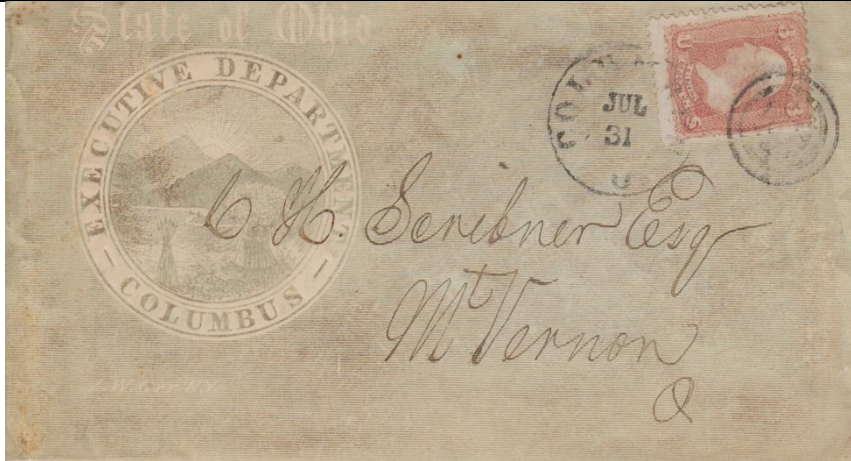 State of Ohio
EXECUTIVE DEPARTMENT
COLUMBUS
JUL
31
C H. Scribner Esq
Mt Vernon
O